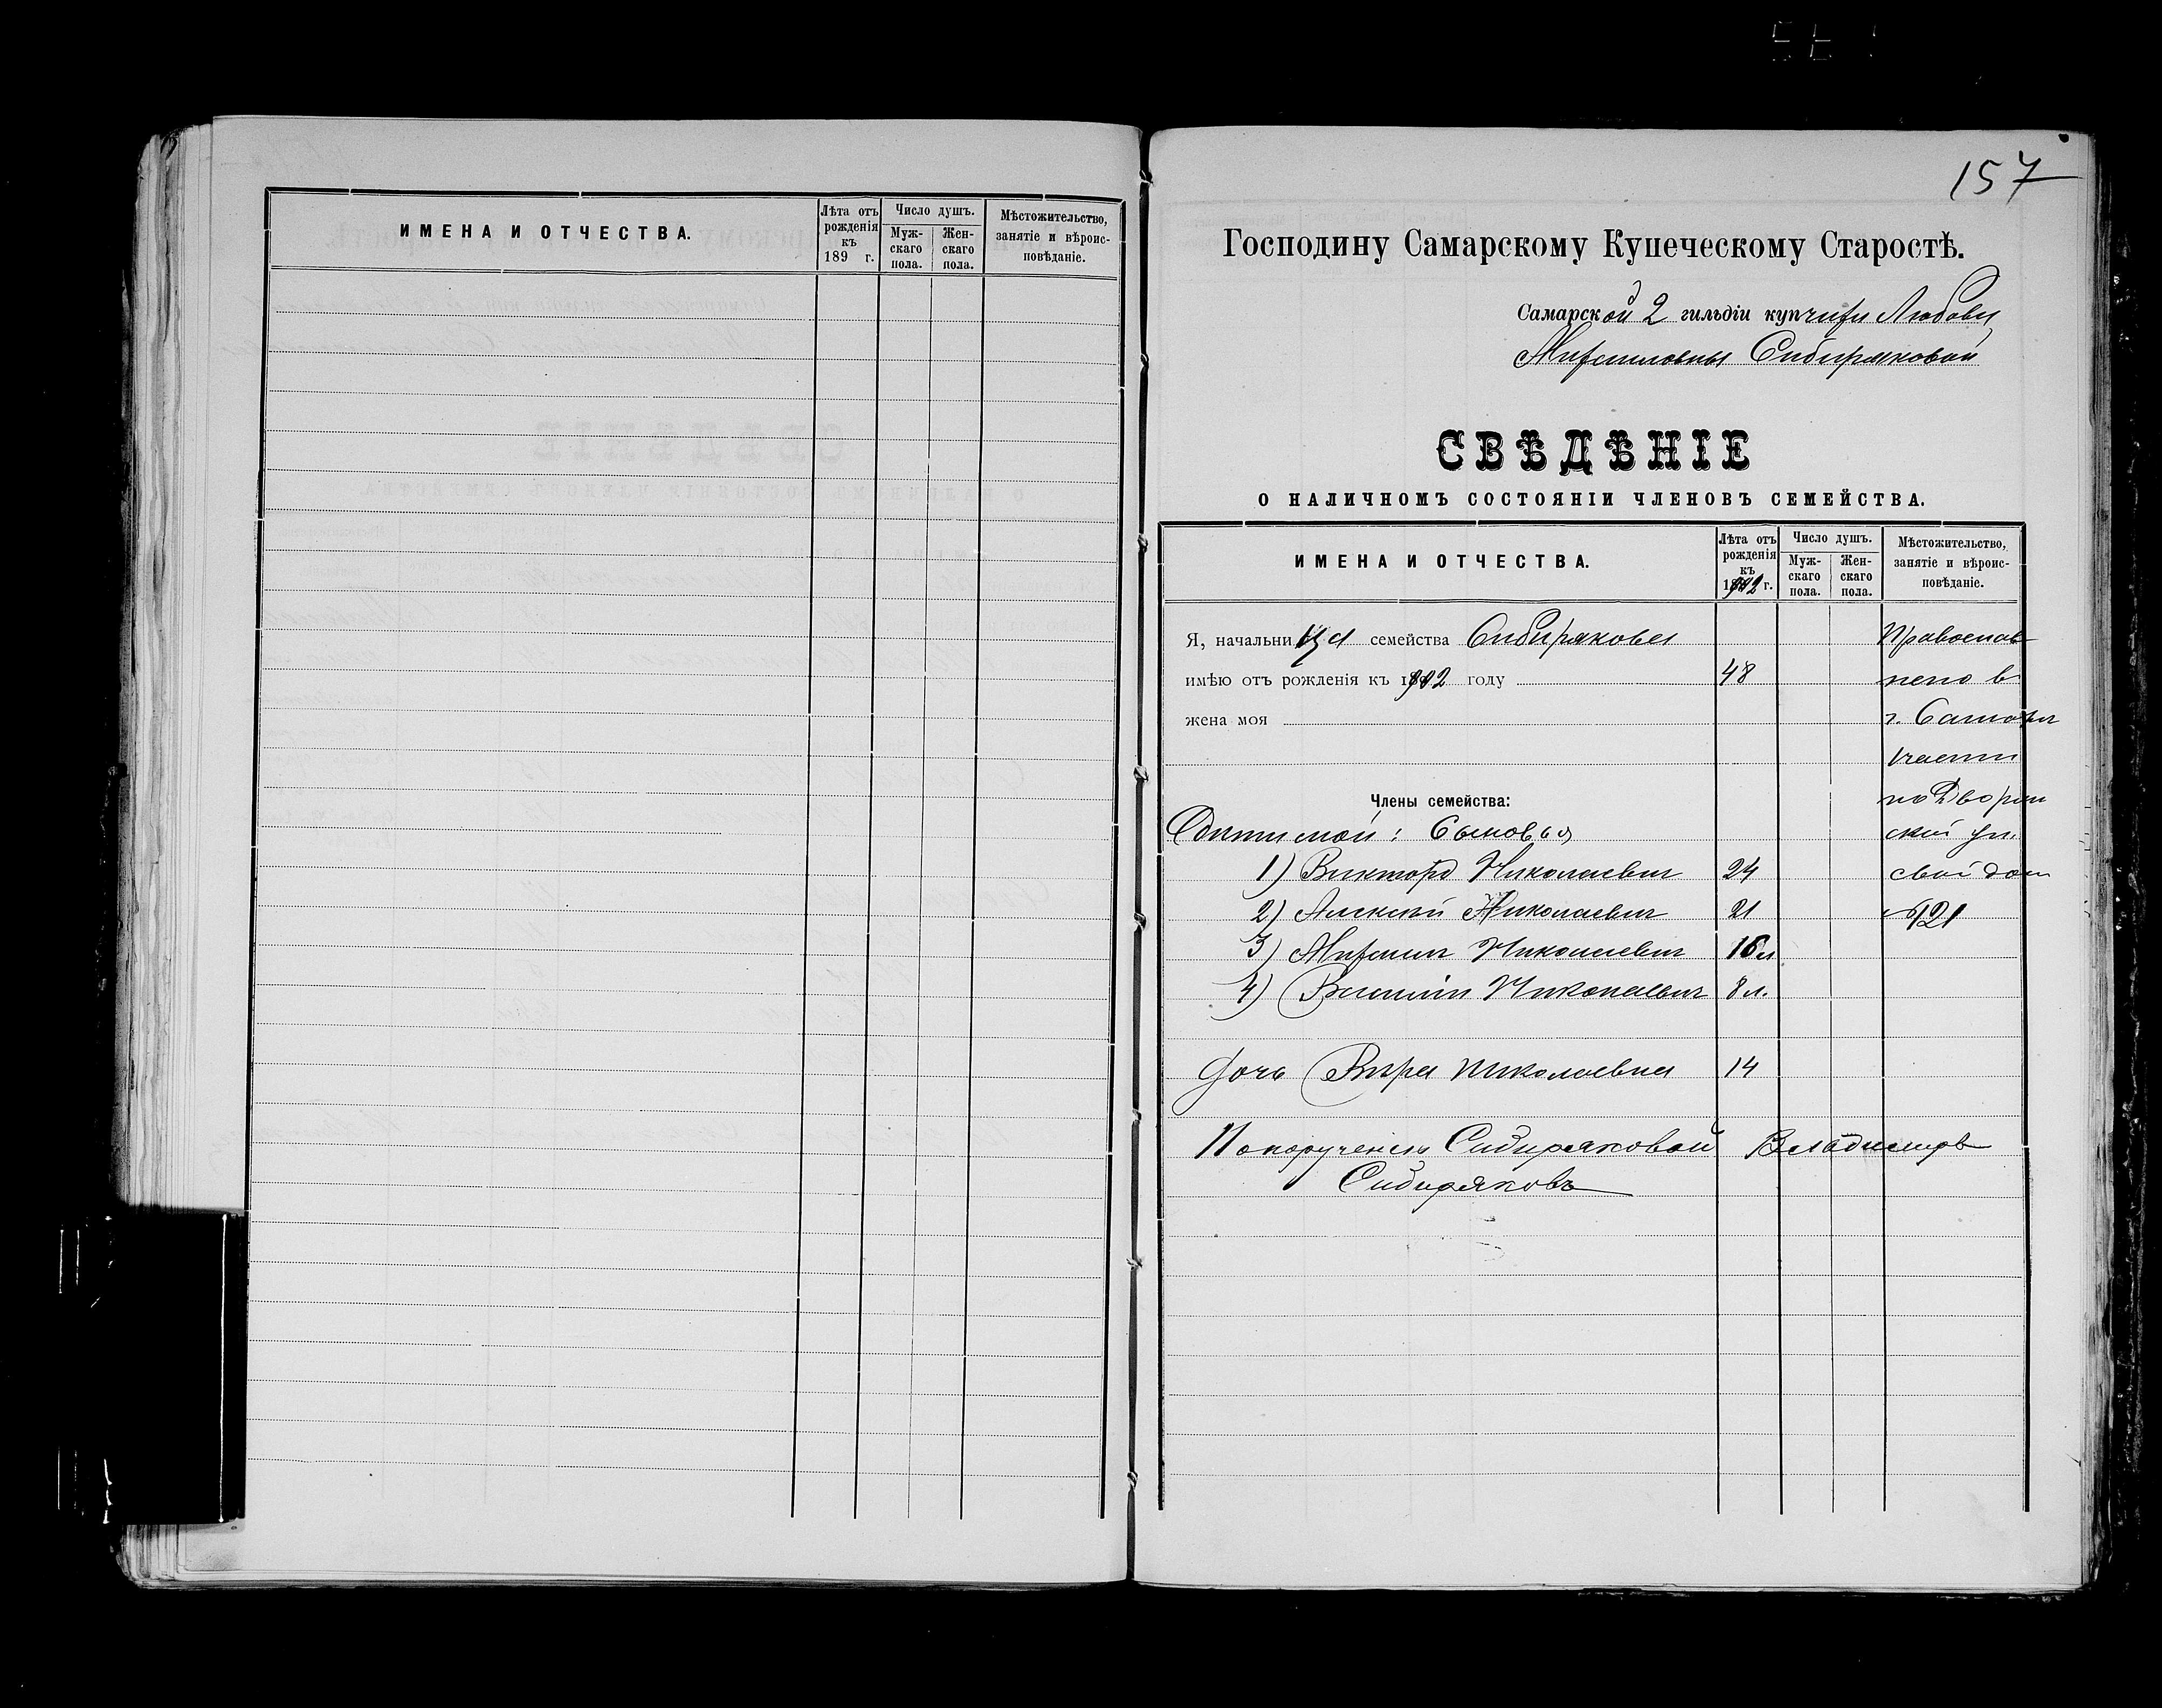 ИМЕНА И ОТЧЕСТВА.
Лѣта отъ рожденія къ 189 г.
Число душъ.
Муж-скаго пола.
Жен-скаго пола.
Мѣстожительство, занятіе и вѣроис-повѣданіе.
157
Господину Самарскому Купеческому Старостѣ.
Самарской 2 гильдіи купчихи Любови
Михаиловны Сибиряковой
СВѢДѢНІЕ
О НАЛИЧНОМЪ СОСТОЯНІИ ЧЛЕНОВЪ СЕМЕЙСТВА.
ИМЕНА И ОТЧЕСТВА.
Лѣта отъ рожденія къ 1892 г.
Число душъ.
Муж-скаго пола.
Жен-скаго пола.
Мѣстожительство, занятіе и вѣроис-повѣданіе.
Я, начальница семейства Сибирякова Православ
имѣю отъ рожденія къ 1892 году 48 в
жена моя г. Самара
части
Члены семейства: по Дворян
мои: Сыновья ской ул.
1) Викторъ Николаевич 24 свой дом
2) Алексѣй Николаевич 21 №121
3) Михаил Николаевич 16 л
4) Николаевич 8 л.
Дочь Вѣра Николаевна 14
По порученію Сибиряковой Владимиръ
Сибиряковъ